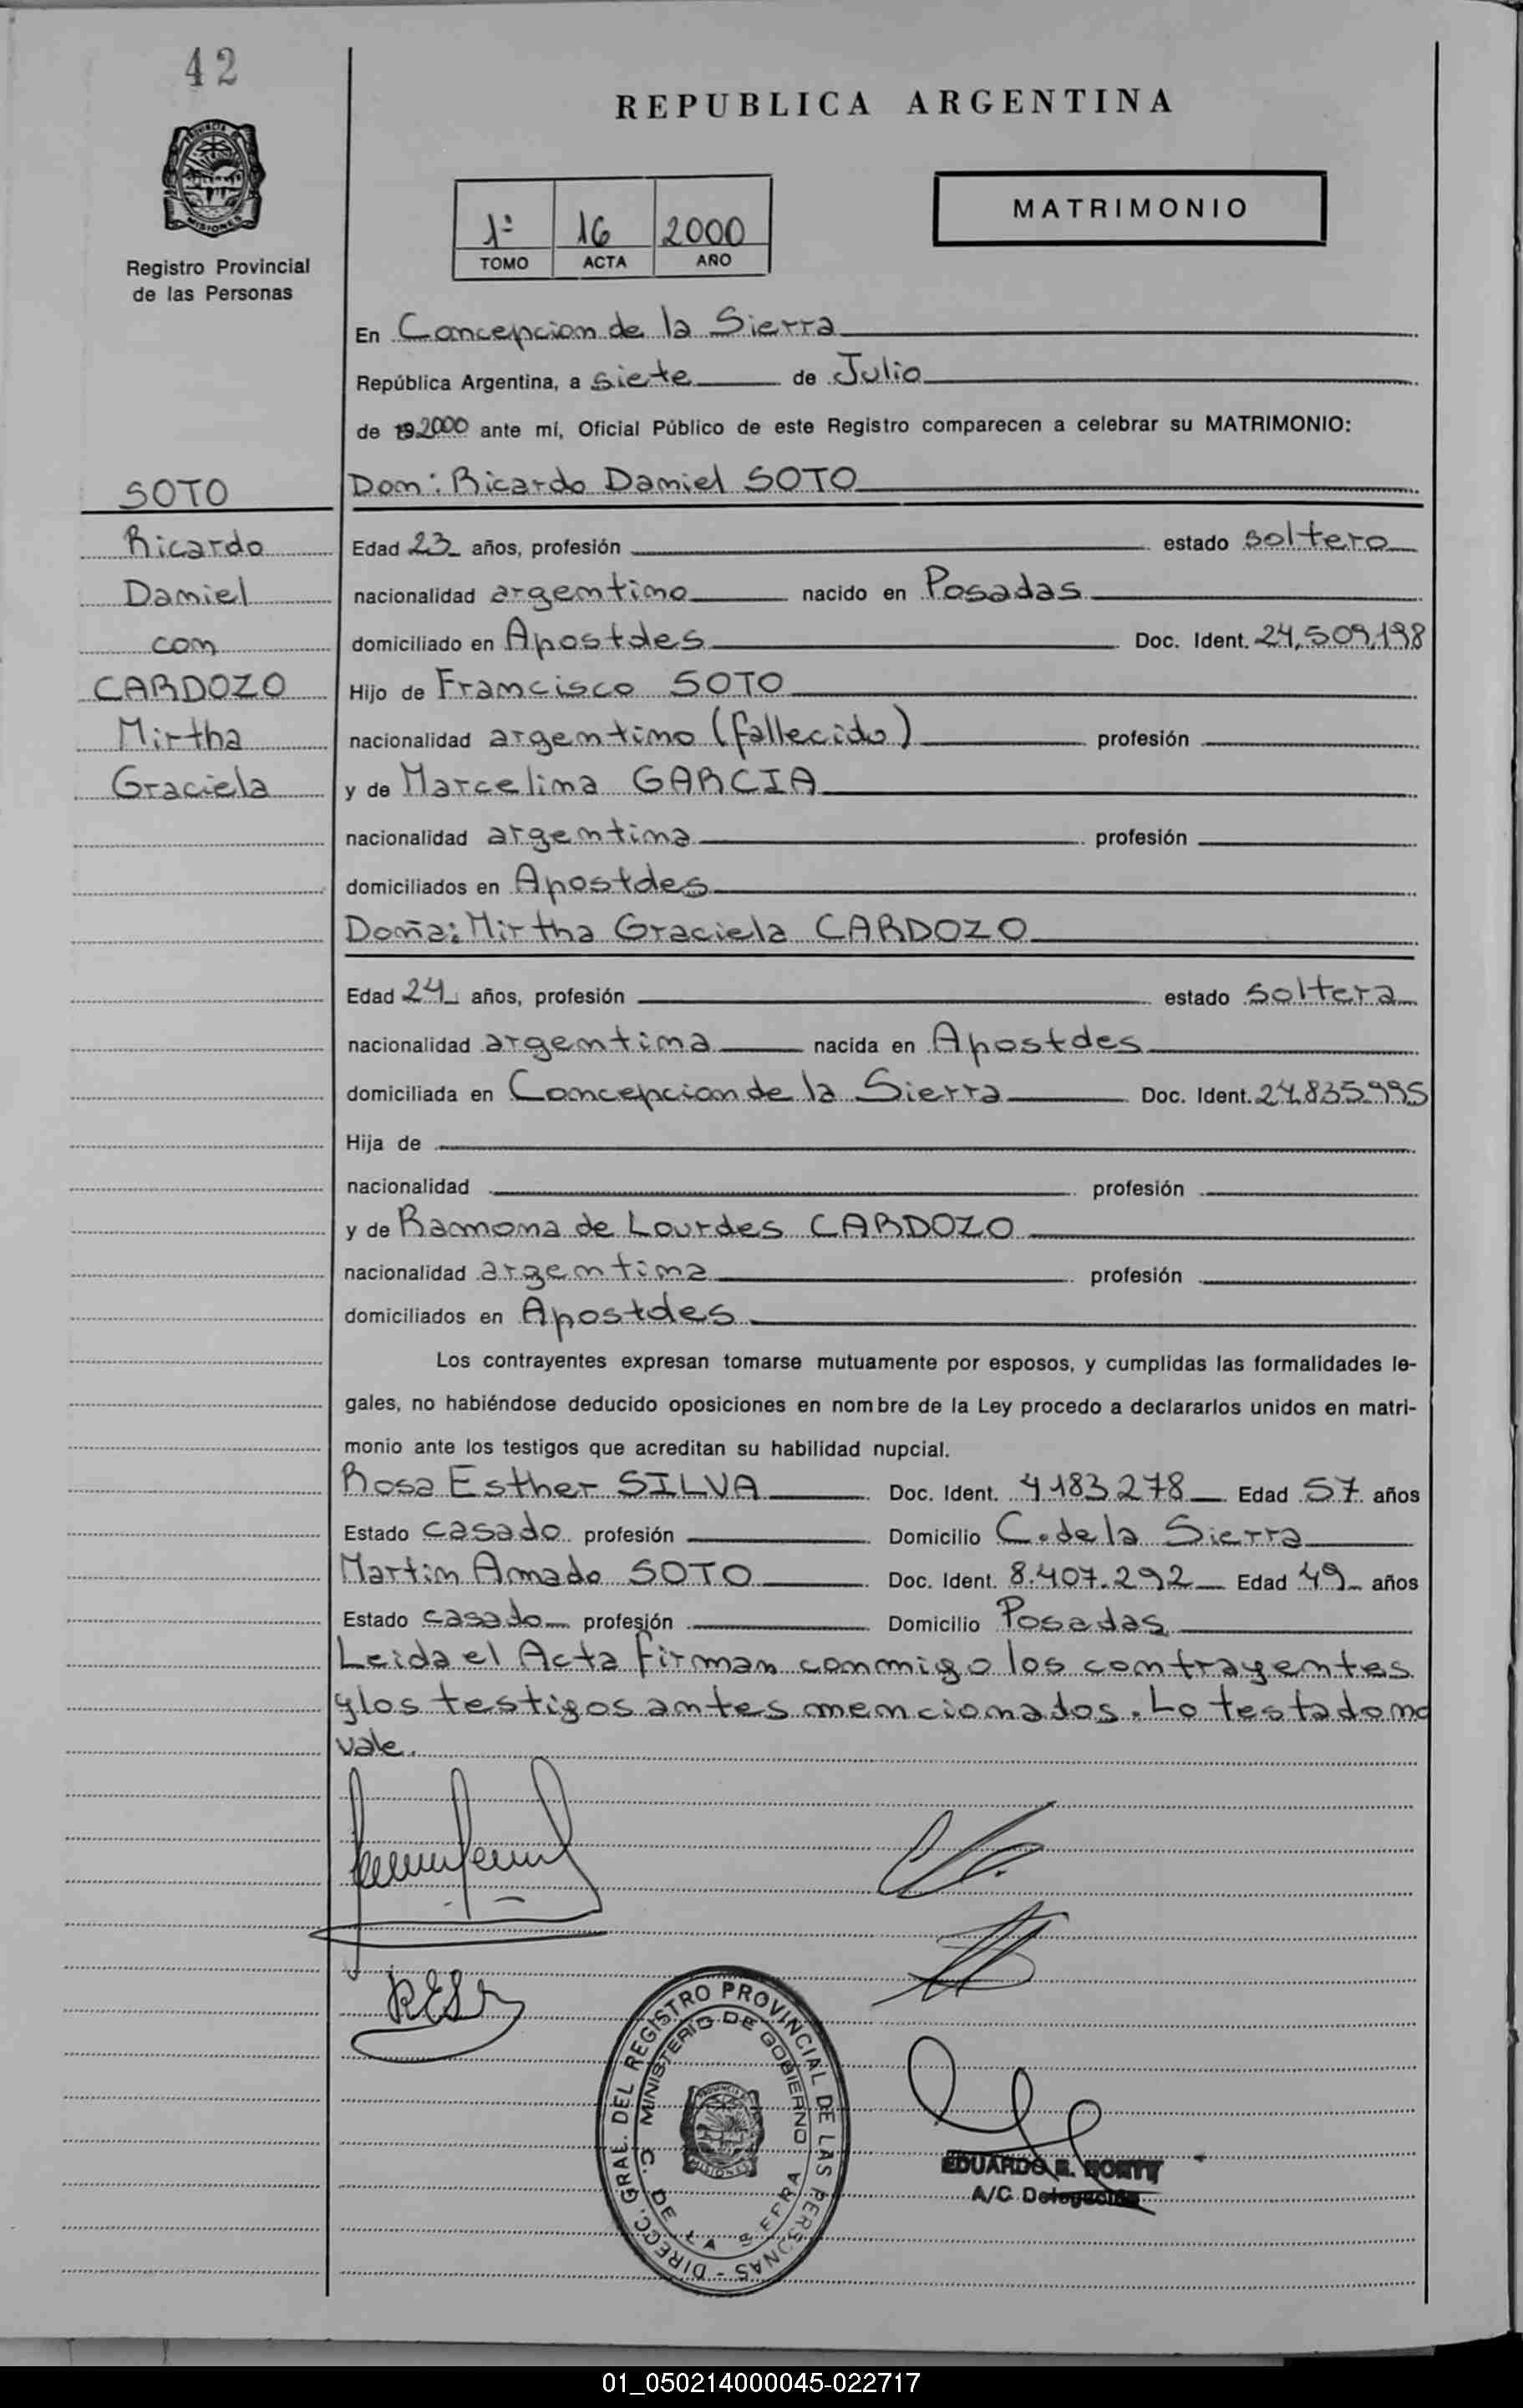 42
REPUBLICA ARGENTINA
PROVINCIA DE
MISIONES
Registro Provincial
de las Personas
1º 16 2000
TOMO ACTA AÑO
MATRIMONIO
En Concepcion de la Sierra
República Argentina, a siete de Julio
de 192000 ante mí, Oficial Público de este Registro comparecen a celebrar su MATRIMONIO:
SOTO
Ricardo
Daniel
con
CARDOZO
Mirtha
Graciela
Don: Ricardo Daniel SOTO
Edad 23 años, profesión estado soltero
nacionalidad argentino nacido en Posadas
domiciliado en Apostoles Doc. Ident. 24,509,198
Hijo de Francisco SOTO
nacionalidad argentino (fallecido) profesión
y de Marcelina GARCIA
nacionalidad argentina profesión
domiciliados en Apostoles
Doña: Mirtha Graciela CARDOZO
Edad 24 años, profesión estado soltera
nacionalidad argentina nacida en Apostoles
domiciliada en Concepcion de la Sierra Doc. Ident. 24.835.995
Hija de
nacionalidad profesión
y de Ramona de Lourdes CARDOZO
nacionalidad argentina profesión
domiciliados en Apostoles
Los contrayentes expresan tomarse mutuamente por esposos, y cumplidas las formalidades le-
gales, no habiéndose deducido oposiciones en nombre de la Ley procedo a declararlos unidos en matri-
monio ante los testigos que acreditan su habilidad nupcial.
Rosa Esther SILVA Doc. Ident. 4183278 Edad 57 años
Estado casado profesión Domicilio C. de la Sierra
Martin Amado SOTO Doc. Ident. 8.407.292 Edad 49 años
Estado casado profesión Domicilio Posadas
Leida el Acta firman conmigo los contrayentes
y los testigos antes mencionados. Lo testado no
vale.
DIRECC. GRAL. DEL REGISTRO PROVINCIAL DE LAS PERSONAS -
MINISTERIO DE GOBIERNO
C. DE LA SIERRA
MISIONES
EDUARDO
A/C Delegación
01_050214000045-022717